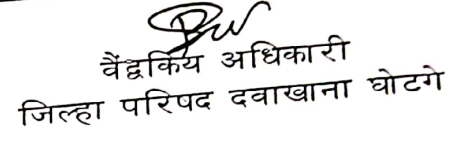 वैंद्वकिय अधिकारी
जिल्हा परिषद दवाखाना घोटगे